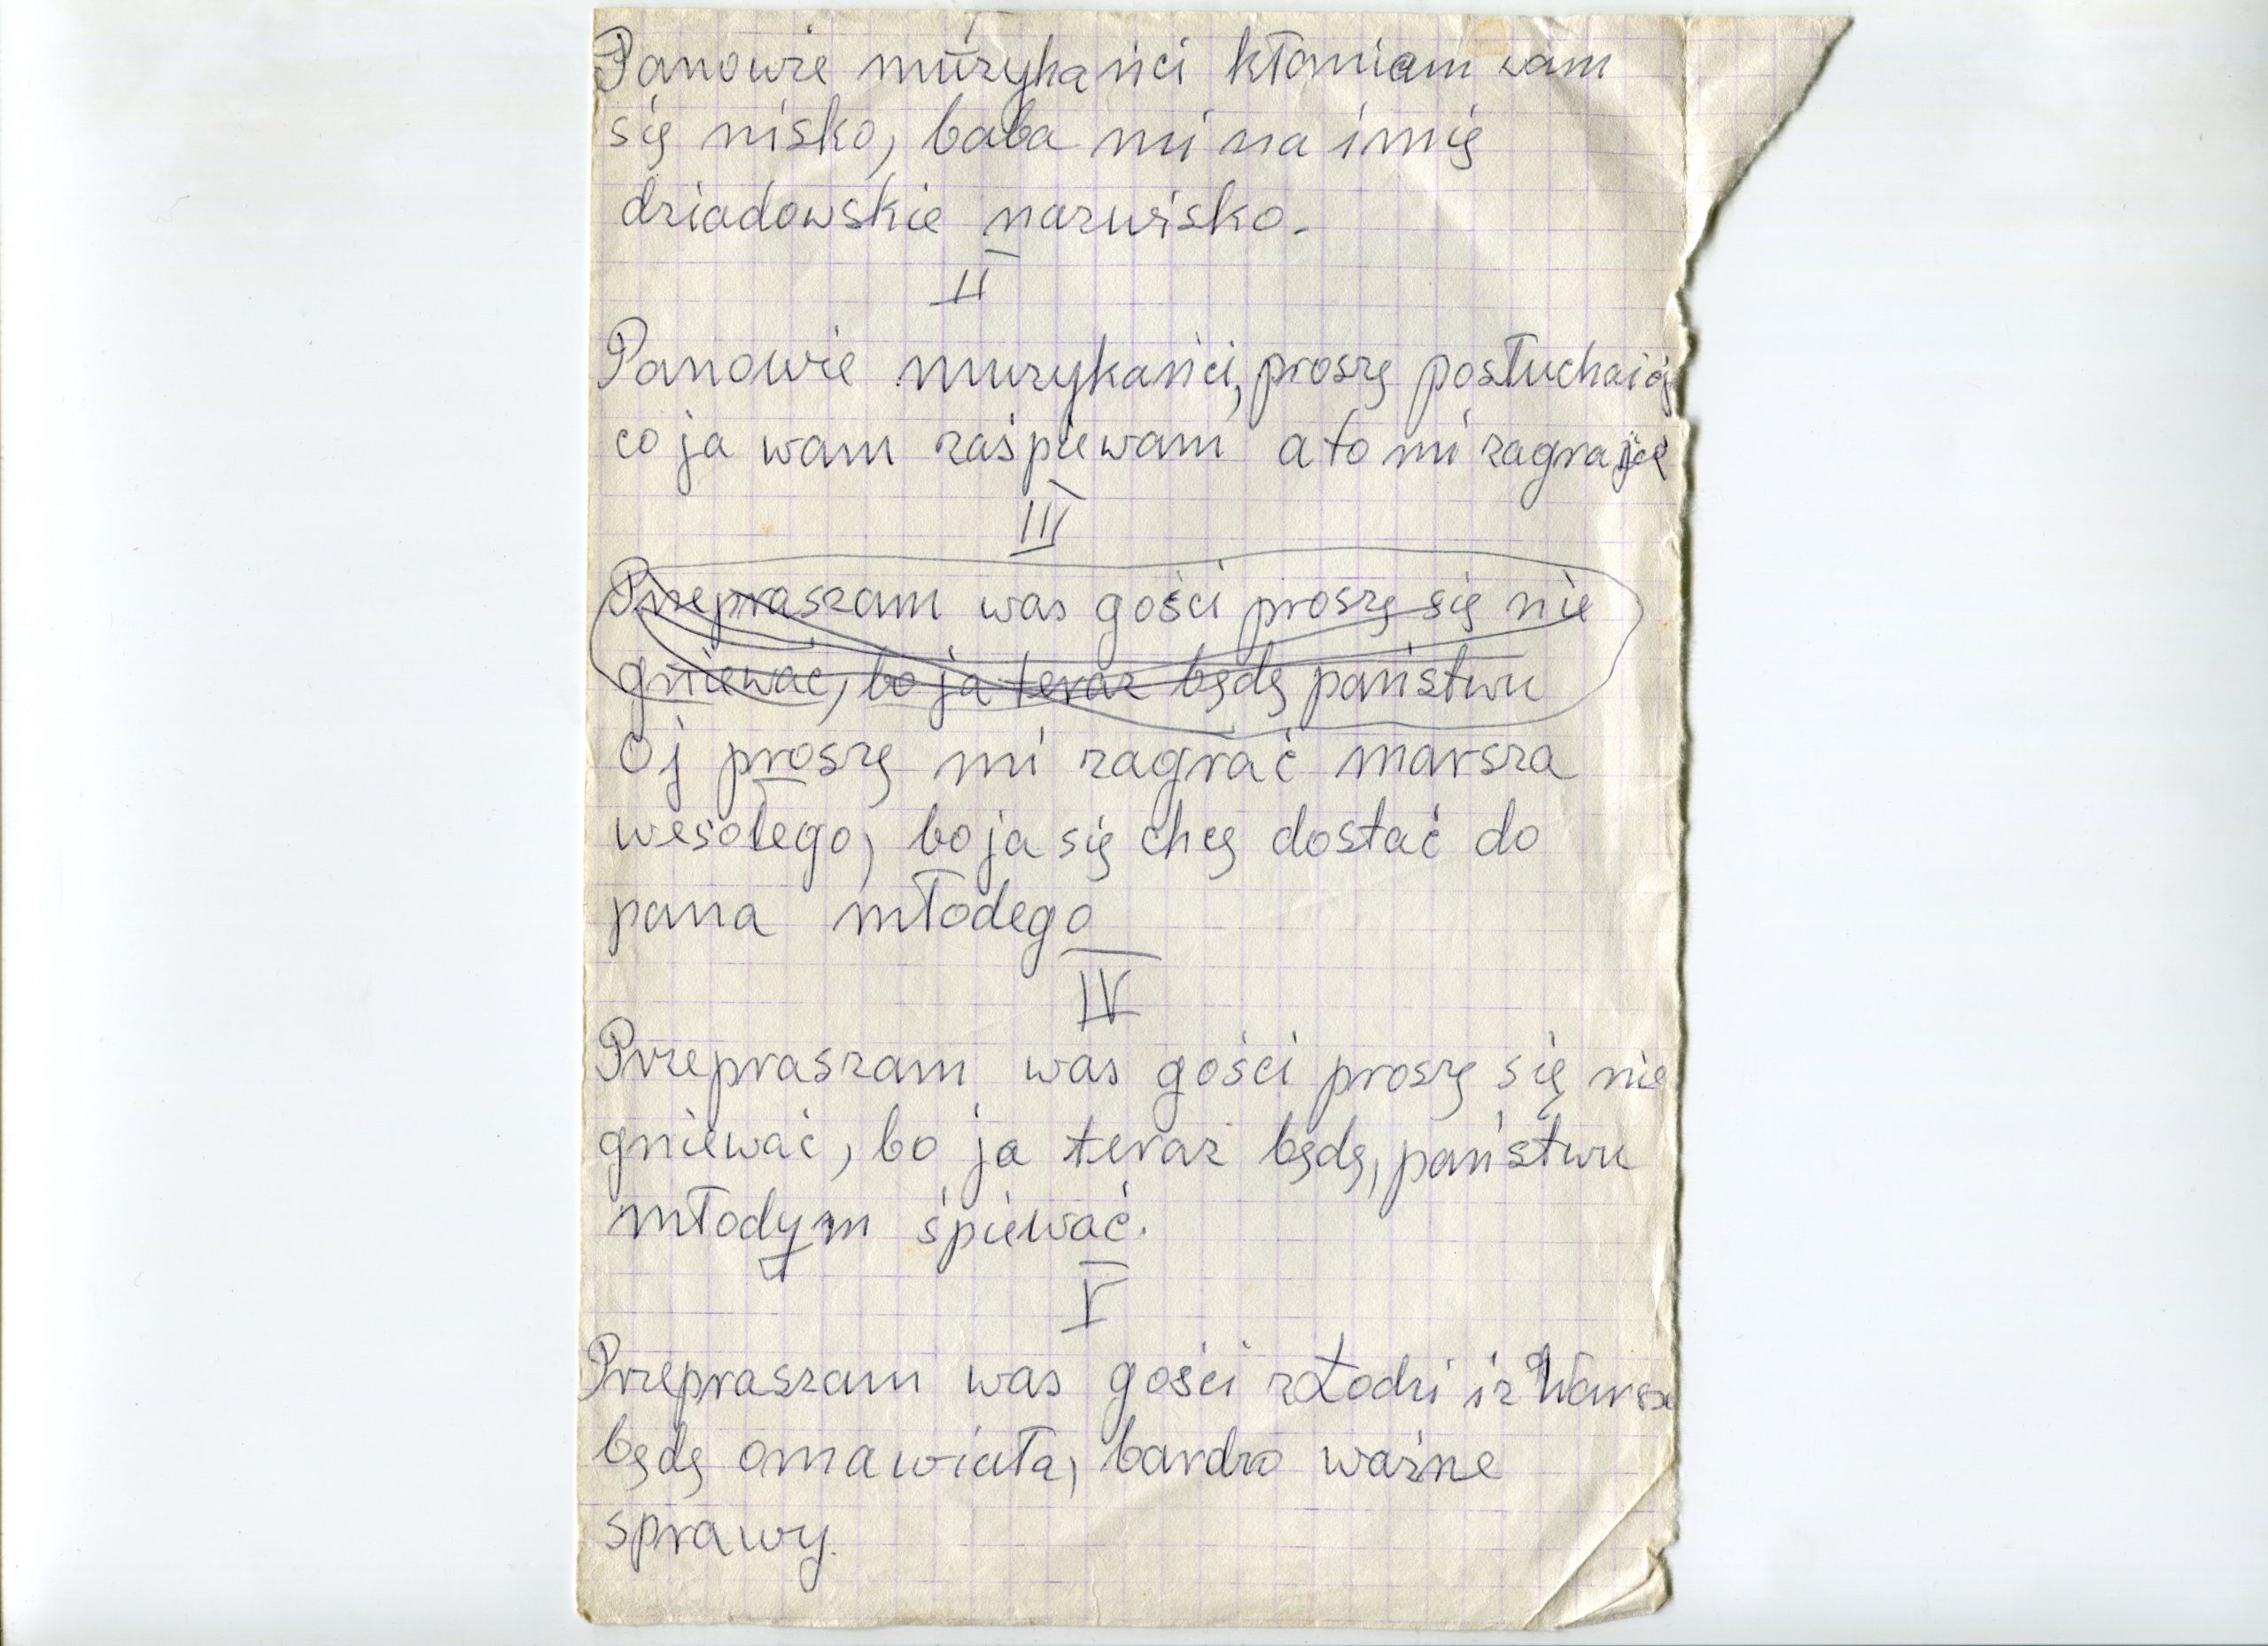 Panowie muzykańci kłaniam wam
się nisko, baba mi na imię
dziadowskie nazwisko.
II
Panowie muzykańci, proszę posłuchajcie
co ja wam zaśpiewam a to mi zagrajcie
III
Przepraszam was gości proszę się nie
gniewać, bo ja teraz będę państwu
Oj proszę mi zagrać marsza
wesołego, bo ja się chcę dostać do
pana młodego
IV
Przepraszam was gości proszę się nie
gniewać, bo ja teraz będę, państwu
młodym śpiewać.
V
Przepraszam was gości z Łodzi i z
będę omawiała, bardzo ważne
sprawy.